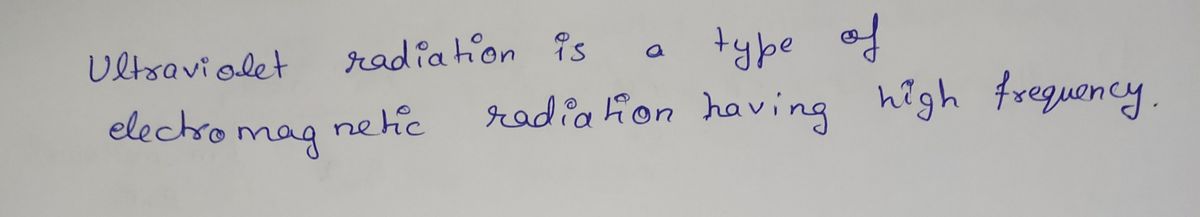 Ultraviolet radiation is a type of
electromagnetic radiation having high frequency.